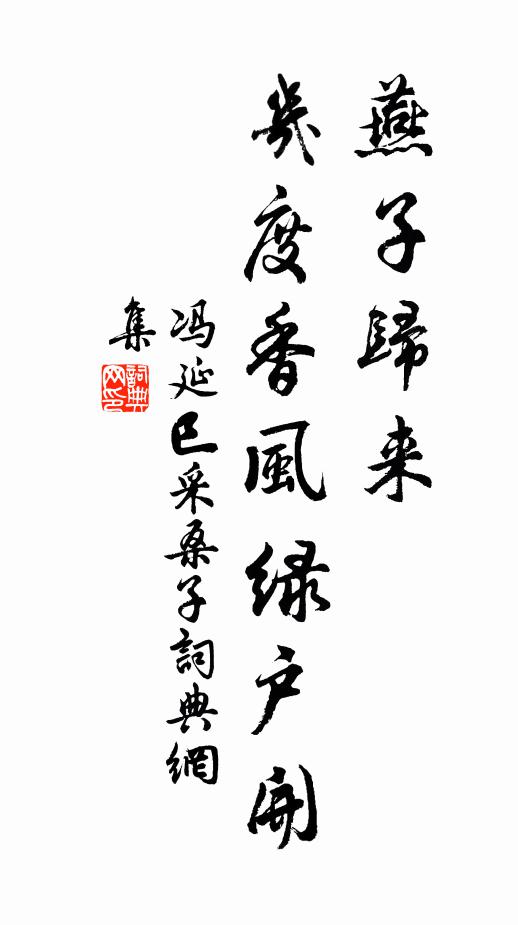 燕子歸来
幾度香風綠户開
冯延巳采桑子詞典網
集
詞典網印